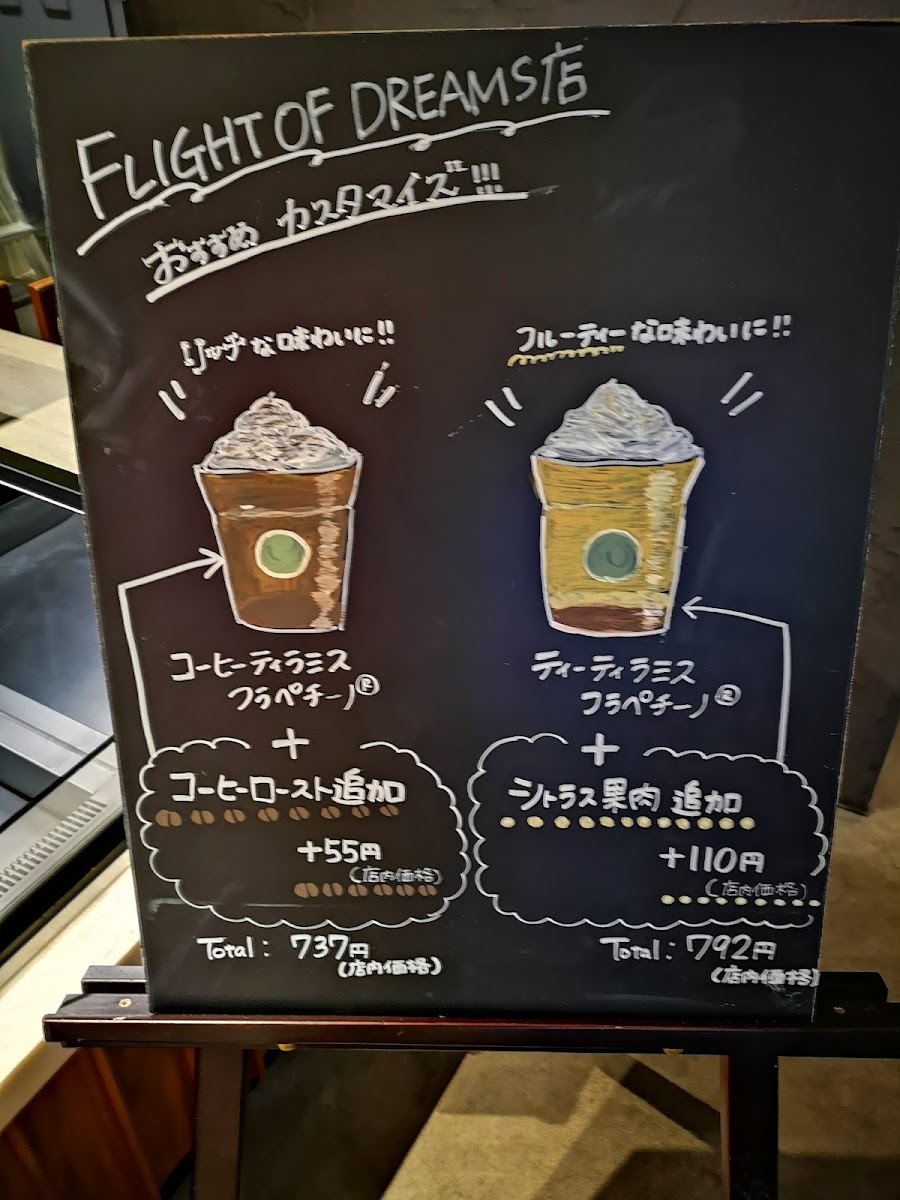 FLIGHT OF DREAMS店
おすすめ カスタマイズ!!!
リッチな味わいに!!
コーヒーティラミス
フラペチーノ®
+
コーヒーロースト追加
+55円
(店内価格)
Total: 737円
(店内価格)
フルーティーな味わいに!!
ティーティラミス
フラペチーノ®
+
シトラス果肉 追加
+110円
(店内価格)
Total: 792円
(店内価格)